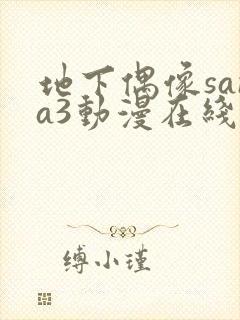 地下偶像sa
a3動漫在綫
缚小瑾